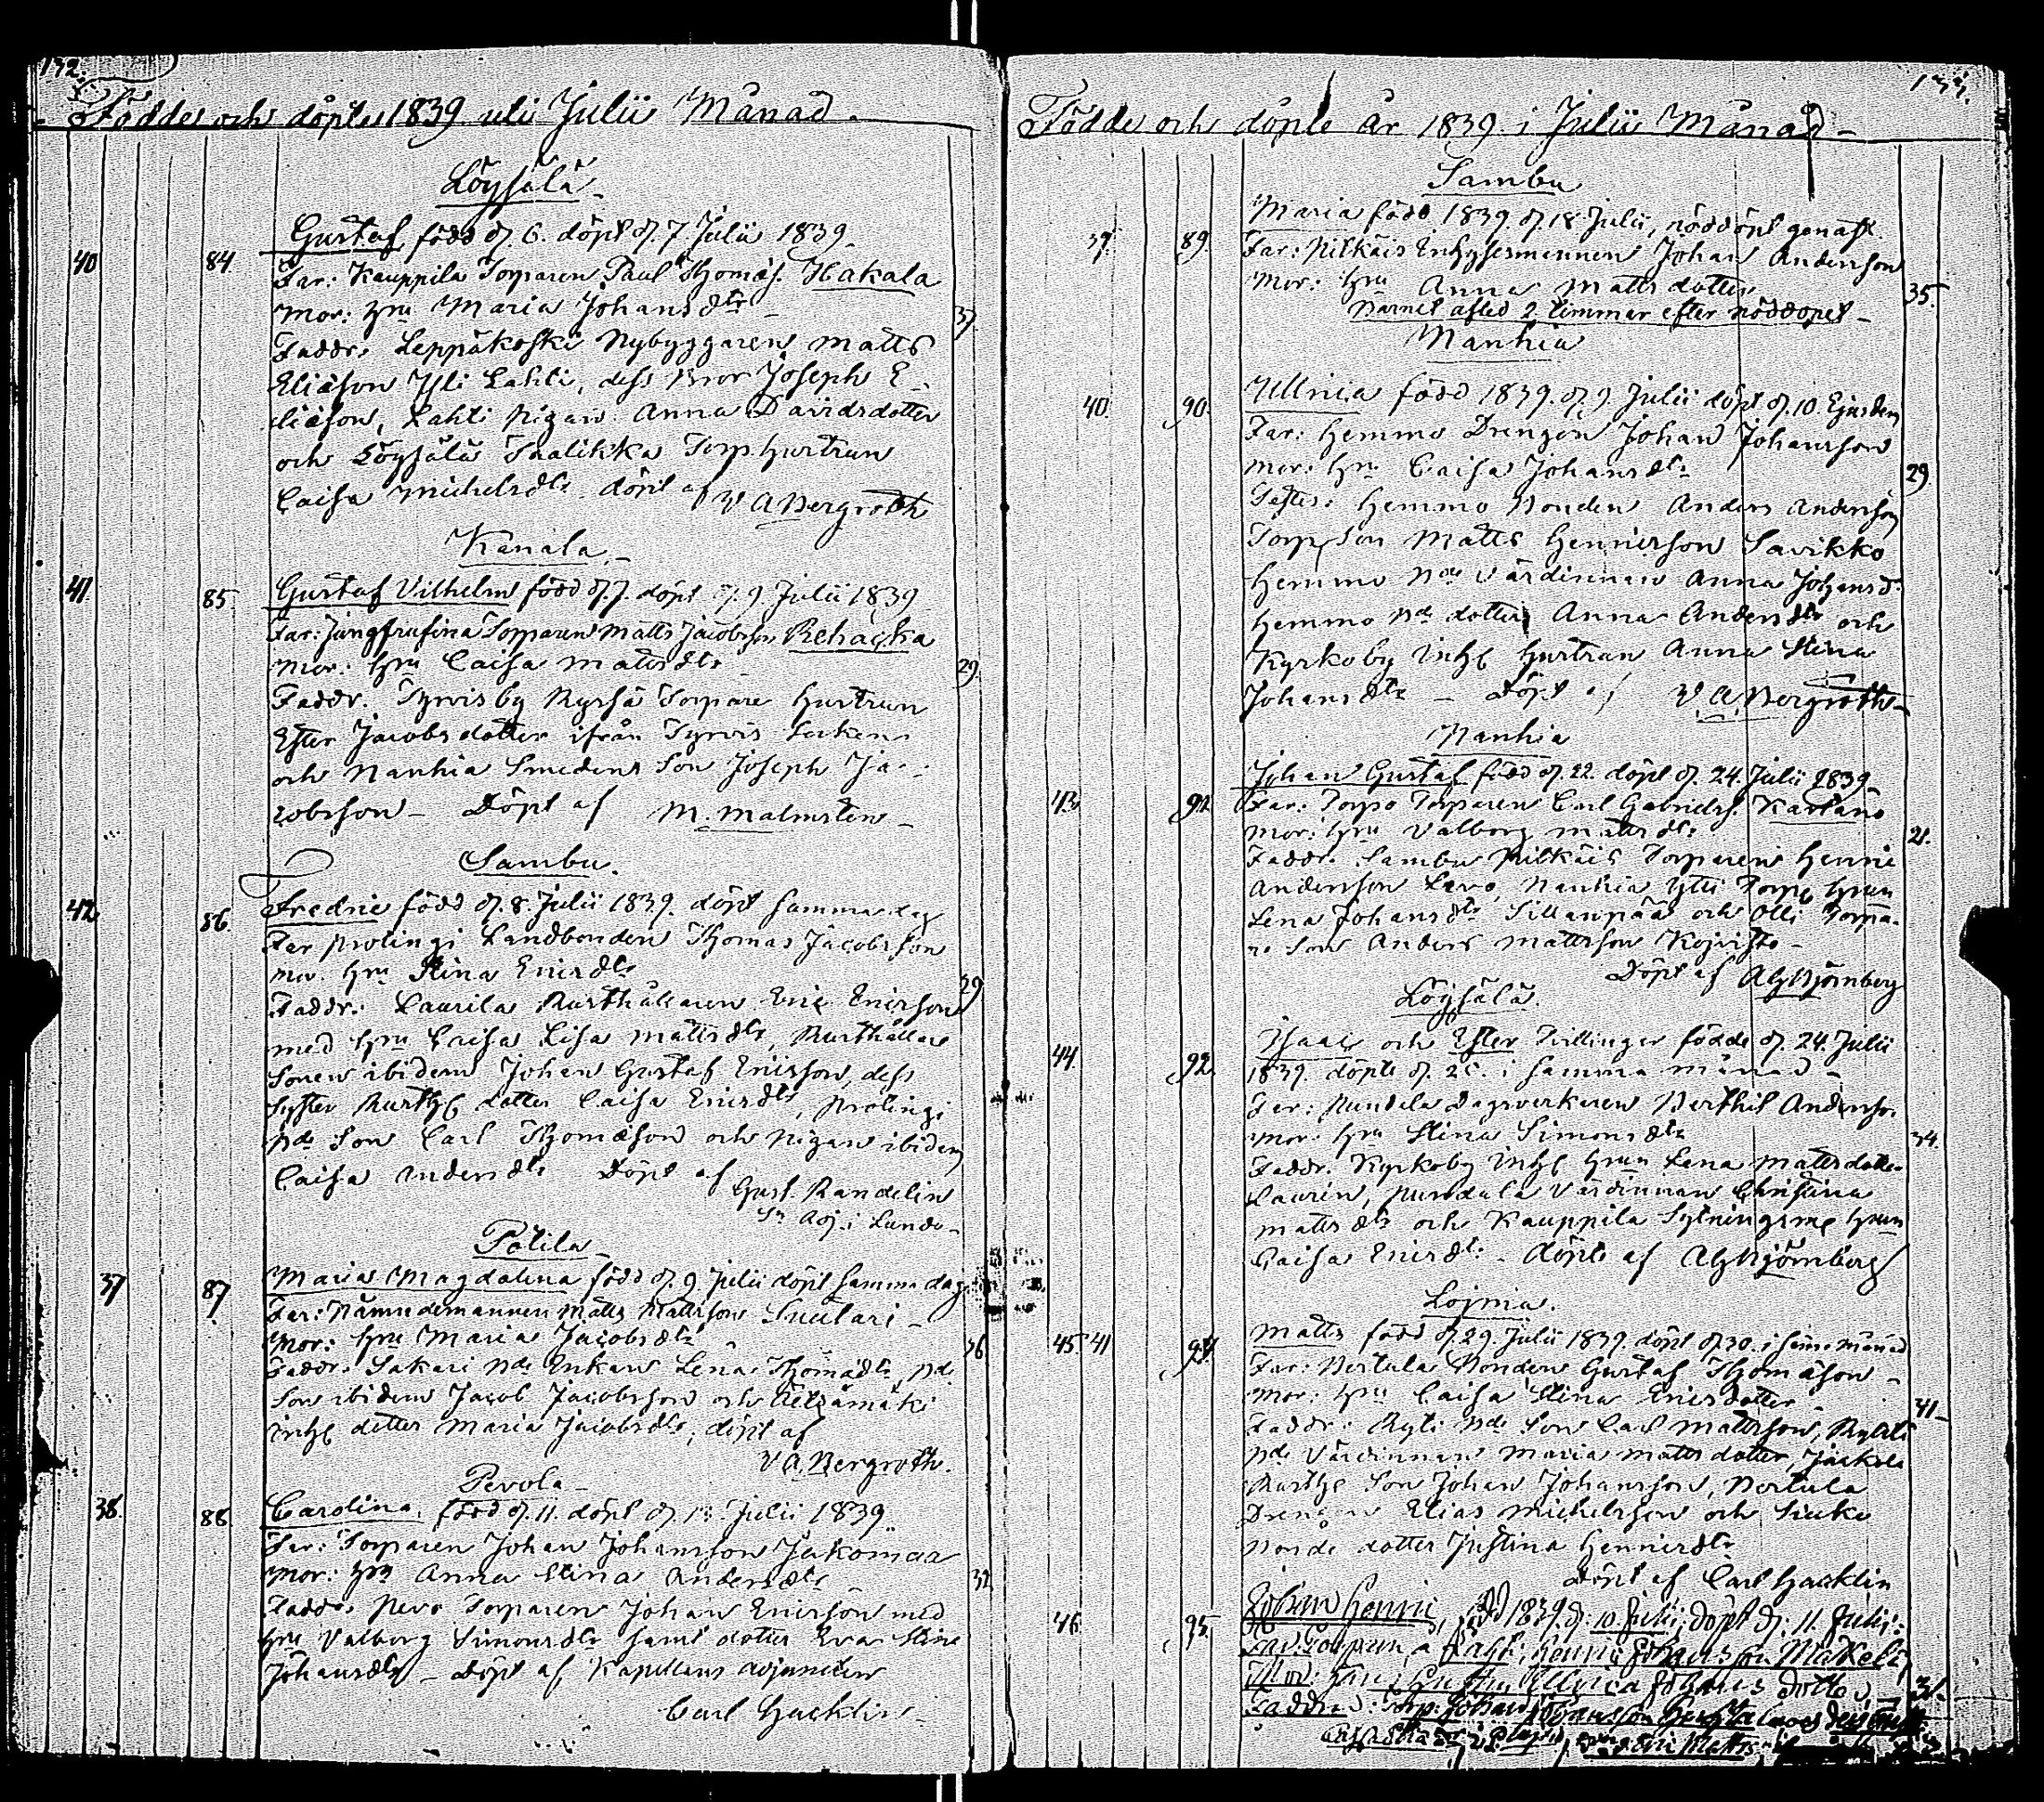 132.
Föddes och döptes 1839 uti Julii Månad.
Löysälä
40 84 Gustaf född d. 6. döpt d. 7 Julii 1839
Far: Kauppila Torparen Paul Thomas. Hakala
Mor: hru Maria Johansdtr 37
Faddr. Leppäkoski Nybyggaren Matts
Eliason Yli Lahti, dess Bror Joseph E-
liäson, Lahti Pigan Anna Davidsdotter
och Löysälä Torp. hustrun
Caisa Michelsdtr döpt af V A Bergroth
Kanala
41 85 Gustaf Vilhelm född d. 7. döpt d. 9 Julii 1839
Far: Jungfrufina Torparen Matts Jacobsson Rehaçka
Mor: hru Caisa Mattsdtr 29.
Faddr. Tyrvisby Torpare hustrun
Ester Jacobsdotter ifrån Tyrvis Socken
och Nanhia Smedens Son Joseph Ja-
cobsson - Döpt af M. Malmsten
Sambu.
42 86. Fredric född d. 8. Julii 1839. döpt samma dag
Far Prolingi Landbonden Thomas Jacobsson
Mor. hru Stina Ericsdtr 29
Faddr: Laurila Rusthållaren Eric Ericsson
med hru Caisa Lisa Mattsdtr, Rusthållare
Sonen ibidem Johan Gustaf Ericsson, dess
Syster Rusth dotter Caisa Ericsdtr, Prolingi
Bde Son Carl Thomason och Pigan ibidem
Caisa Andersdtr Döpt af Gust. Randelin
Sn Adj. i Lundo
Potila
37 87 Maria Magdalena född d. 9 Julii döpt samma dag
Far: Nämndemannen Matts Mattsson Suutari
Mor: hru Maria Jacobsdtr 36
Faddr. Sakari Bde Enkan Lena Thomasdtr, Bde
Son ibidem Jacob Jacobsson och
inhs dotter Maria Jacobsdtr, döpt af
V A. Bergroth.
Pevola
38. 88. Carolina, född d. 11. döpt d. 13. Julii 1839
Far: Torparen Johan Johansson Jakomaa
Mor: hru Anna Stina Andersdtr 32
Faddr. Pevo Torparen Johan Ericsson med
hru Valborg Simonsdtr samt dotter Eva Stina
Johansdtr - Döpt af Kapellans Adjuncten
Carl Hacklin
133.
Födde och döpte År 1839 i Julii Månad
Sambu
39. 89. Maria född 1839. d. 18 Julii, nöddöpt genast.
Far: Pitkäis Inhysesmannen Johan Andersson
Mor: hru Anna Matts dotter 35.
Barnet afled 2 timmar efter nöddopet
Nanhia
40. 90. Ullrica född 1839. d. 9. Julii döpt d. 10. Ejusdem
Far: Hemmo Drengen Johan Johansson
Mor: hru Caisa Johansdtr 29.
Testes: Hemmo Bonden Anders Andersson
Torp Son Matts Henricsson Savikko
Hemmo Bde Värdinnan Anna Johansd.
Hemmo Bd dotter Anna Andersdtr och
Kyrkoby Inhs hustrun Anna Stina
Johansdtr - Döpt af V. A. Bergroth
Nanhia
43. 91. Johan Gustaf född d. 22. döpt d. 24. Julii 1839
Far: Torpo Torparen Carl Gabriels. Kartano
Mor: hru Valborg Mattsdtr 21.
Faddr. Sambu Pitkäis Torparen Henric
Andersson Lavo, Nanhia Ytti Torps hrun
Lena Johansdtr Sillanpää och Olli Torpa-
re Son Anders Mattsson Kojvisto
Döpt af A G Björnberg
Löysälä.
44. 92. Isaac och Ester Tvillingar födde d. 24. Julii
1839. döpte d. 25. i samma månad
Far: Pundila Dagsverkaren Berthil Anderss.
Mor: hru Stina Simonsdtr 34.
Faddr. Kyrkoby Inhs hrun Lena Mattsdotter
Laurén, Pundala Värdinnan Christina
Mattsdtr och Kauppila Sytningsme hrun
Caisa Ericsdtr. Döpte af A G Björnberg
Lojma.
45 41 94. Matts född d. 29. Julii 1839. döpt d. 30. i samma månad
Far: Bertula Bonden Gustaf Thomason
Mor: hru Caisa Stina Ericsdotter 41
Faddr: Kyti Bde Son Carl Mattsson,
Bde Värdinnan Maria Mattsdotter,
Rusths Son Johan Johansson, Bertula
Drengen Elias Michelsson och
Bonde dotter Justina Henricsdtr
Döpt af Carl Hacklin
46. 95. Johan Henric, född 1839. d. 10 Julii; döpt d. 11. Julii:
Henric Johansson Mäkelä
Mor: Ullrica Johans dotter 31.
Faddr: Torp: Johan Johansson